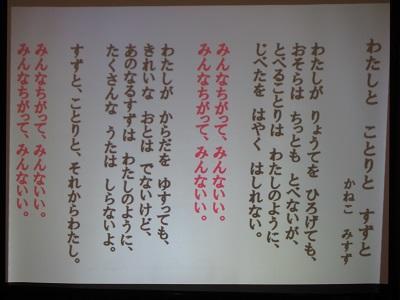 わたしと ことりと すずと
かねこ みすず
わたしが りょうてを ひろげても、
おそらは ちっとも とべないが、
とべることりは わたしのように、
じべたを はやく はしれない。
みんなちがって、みんないい。
みんなちがって、みんないい。
わたしが からだを ゆすっても、
きれいな おとは でないけど、
あのなるすずは わたしのように、
たくさんな うたは しらないよ。
すずと、ことりと、それからわたし。
みんなちがって、みんないい。
みんなちがって、みんないい。